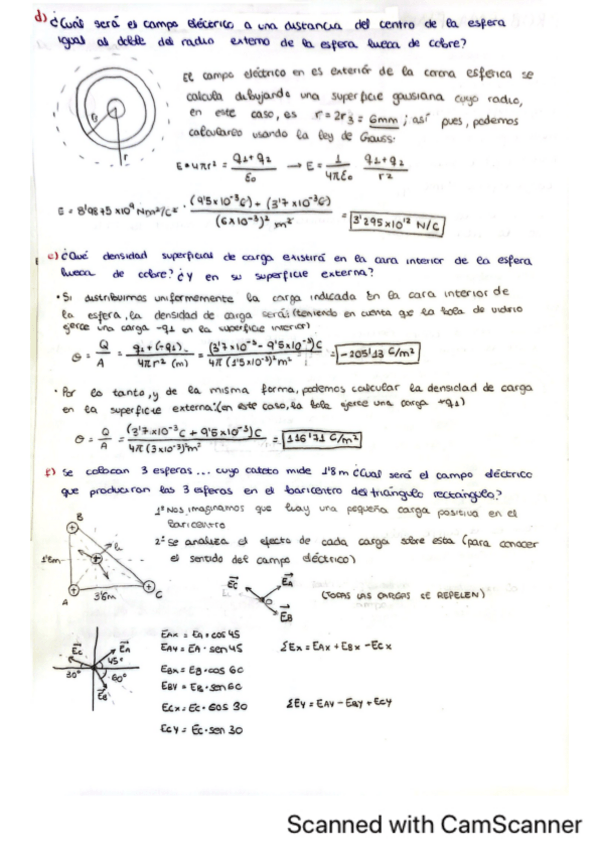 d) ¿Cuál será el campo eléctrico a una distancia del centro de la esfera
igual al doble del radio externo de la esfera hueca de cobre?
El campo eléctrico en es exterior de la corona esférica se
calcula dibujando una superficie gausiana cuyo radio,
en este caso, es r = 2r3 = 6mm ; así pues, podemos
calcularlo usando la ley de Gauss:
r
E • 4πr² = q1 + q2 / ε0 → E = 1 / 4πε0 q1 + q2 / r²
E = 8'9875 x10⁹ Nm²/C² • (9'5x10⁻³C) + (3'7x10⁻³C) / (6x10⁻³)² m² = 3'295x10¹² N/C
e) ¿Qué densidad superficial de carga existirá en la cara interior de la esfera
hueca de cobre? ¿y en su superficie externa?
• Si distribuimos uniformemente la carga indicada en la cara interior de
la esfera, la densidad de carga será: (teniendo en cuenta que la bola de vidrio
ejerce una carga -q1 en la superficie interior)
σ = Q / A = q2 + (-q1) / 4πr² (m) = (3'7x10⁻³ - 9'5x10⁻³)C / 4π (1'5x10⁻³)² m² = -205'13 C/m²
• Por lo tanto, y de la misma forma, podemos calcular la densidad de carga
en la superficie externa: (en este caso, la bola ejerce una carga +q1)
σ = Q / A = (3'7x10⁻³C + 9'5x10⁻³)C / 4π (3x10⁻³)² m² = 116'71 C/m²
f) Se colocan 3 esferas ... cuyo cateto mide 1'8m ¿Cuál será el campo eléctrico
que produciran las 3 esferas en el baricentro del triángulo rectángulo?
1º Nos imaginamos que hay una pequeña carga positiva en el
baricentro
2º Se analiza el efecto de cada carga sobre esta (para conocer
el sentido del campo eléctrico)
B
1'8m
A
3'6m
C
Ec
EA
EB
(TODAS LAS CARGAS SE REPELEN)
Ec
EA
45°
30°
60°
EB
EAx = EA • cos 45
EAy = EA • sen 45
ΣEx = EAx + EBx - ECx
EBx = EB • cos 60
EBy = EB • sen 60
ECx = Ec • cos 30
ΣEy = EAy - EBy + ECy
ECy = Ec • sen 30
Scanned with CamScanner